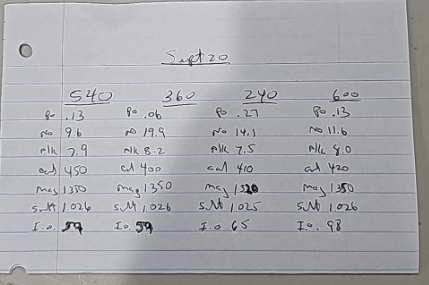 Sept 20
540 360 240 600
Po .13 Po .06 Po .27 Po .13
No 9.6 No 19.9 No 14.1 No 11.6
Alk 7.9 Alk 8.2 Alk 7.5 Alk 8.0
cal 450 cal 400 cal 410 cal 420
mag 1350 mag 1350 mag 1320 mag 1350
Salt 1.026 Salt 1.026 Salt 1.025 Salt 1.026
I.o. 59 I.o 59 I.o 65 I.o. 98